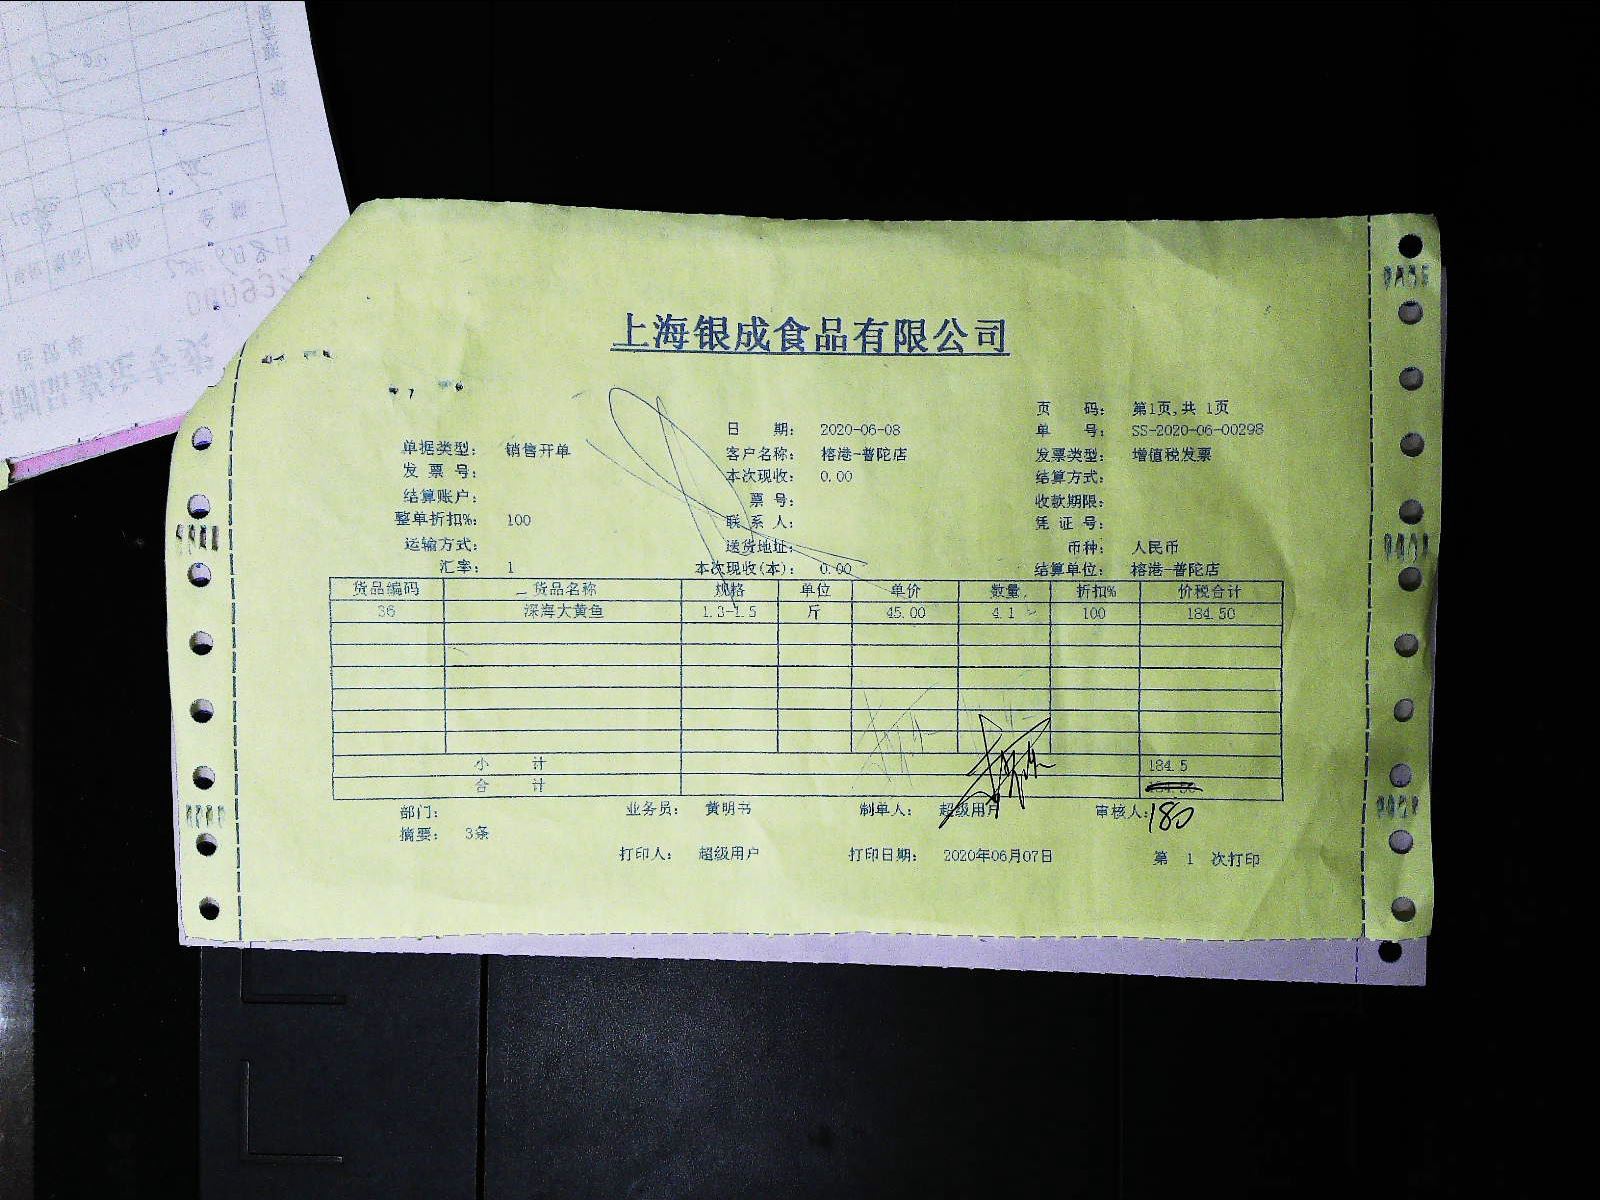 上海银成食品有限公司
页 码： 第1页,共 1页
日 期： 2020-06-08 单 号： SS-2020-06-00298
单据类型： 销售开单 客户名称： 榕港-普陀店 发票类型： 增值税发票
发 票 号： 本次现收： 0.00 结算方式：
结算账户： 票 号： 收款期限：
整单折扣%： 100 联 系 人： 凭 证 号：
运输方式： 送货地址： 币种： 人民币
汇率： 1 本次现收(本)： 0.00 结算单位： 榕港-普陀店
货品编码 货品名称 规格 单位 单价 数量 折扣% 价税合计
36 深海大黄鱼 1.3-1.5 斤 45.00 4.1 100 184.50
小 计 184.5
合 计
部门： 业务员： 黄明书 制单人： 超级用户 审核人： 180
摘要： 3条
打印人： 超级用户 打印日期： 2020年06月07日 第 1 次打印